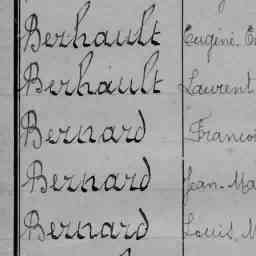 Berhault Eugéne
Berhault Laurent
Bernard
Bernard Jean-Ma
Bernard Louis